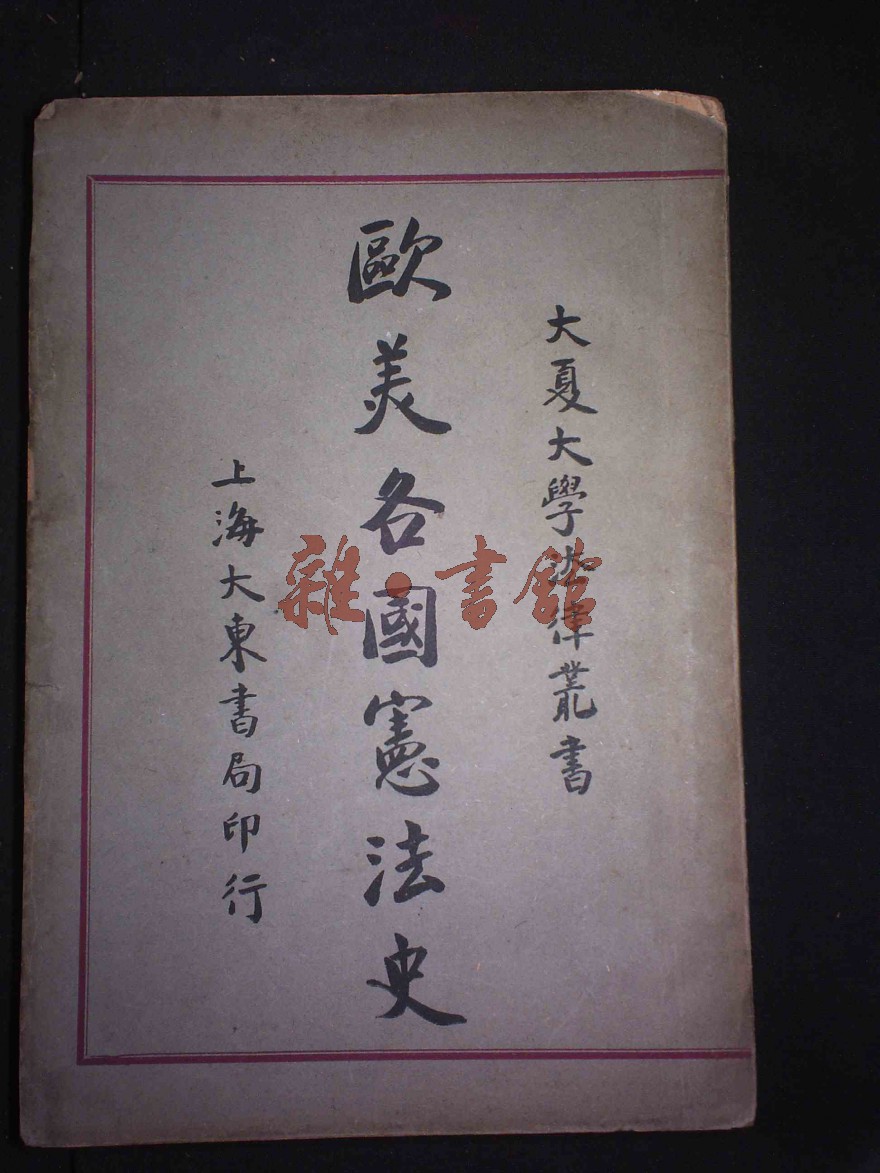 大夏大學法律叢書
歐美各國憲法史
上海大東書局印行
雜·書館